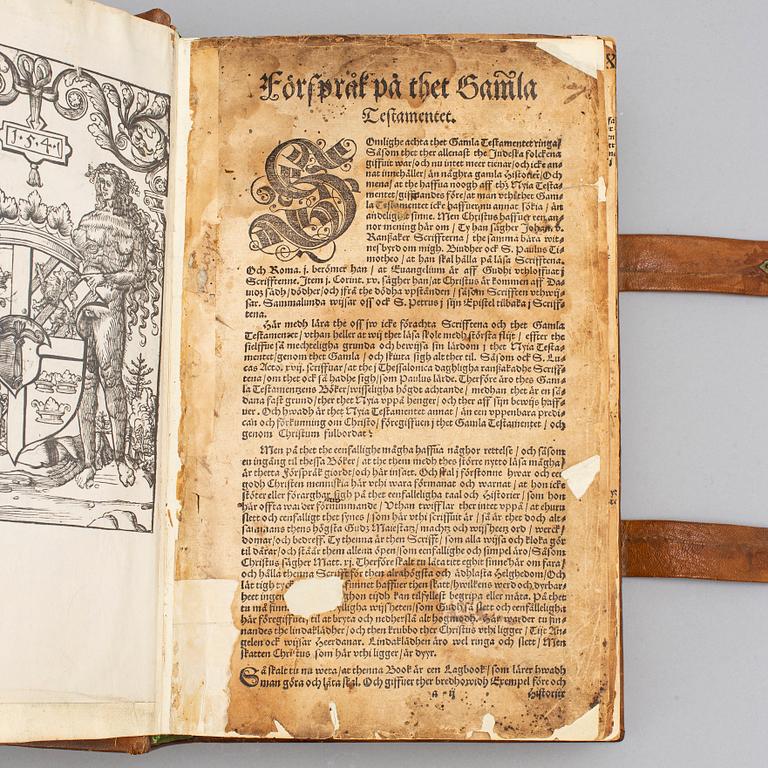 1 5 4 1
Förspråk på thet Gamla
Testamentet.
SOmlighe achta thet Gamla Testamentet ringa/
Såsom thet ther allenast the Judeska folckena
giffuit war/och nu intet meer tienar/och icke an-
nat innehåller/ än någhra gamla Historier/Och
mena/ at the haffua noogh aff thy Nyia Testa-
mentet/ giffuandes före/at man vthi thet Gam-
la Testamentet icke haffuer nu annat sökia / än
andeligit sinne. Men Christus haffuer een an-
nor mening här om / Ty han sägher Johan. v.
Ranßaker Scriffterna / the samma bära wit-
nesbyrd om migh. Biudher ock S. Paulus Ti-
motheo / at han skal hålla på läsa Scrifftena,
Och Roma. j. berömer han / at Euangelium är aff Gudhi vthloffuat j
Scrifftenne. Item j. Corint. xv. sägher han/at Christus är kommen aff Da-
uidz sädh/dödher/och ifrå the dödha vpstånden / såsom Scrifften vthwij-
sar. Sammalunda wijsar oss ock S. Petrus j sijn Epistel tilbaka j Scriff-
tena.
Här medh lära the oss jw icke förachta Scrifftena och thet Gamla
Testamentet / vthan heller at wij thet läsa skole medh största flijt / effter the
sielffue så mechteligha grunda och bewijsa sin lärdom j thet Nyia Testa-
mentet/genom thet Gamla / och skiuta sigh alt ther til. Såsom ock S. Lu-
cas Acto. xvij. scriffuar / at the j Thessalonica daghligha ranßakadhe Scriff-
tena / om thet ock så hadhe sigh/som Paulus lärde. Therföre äro thes Gam-
la Testamentzens Böker/wisseligha högdt achtande / medhan thet är en så-
dana fast grund/ther thet Nyia vppå henger/och ther aff sijn bewijs haff-
uer. Och hwadh är thet Nyia Testamentet annat / än een vppenbara predi-
can och förkunning om Christo/föregiffuen j thet Gamla Testamentet / och
genom Christum fulbordat?
Men på thet the eenfallighe mågha haffua någhor rettelse / och såsom
en ingång til thessa Böker/at the them medh thes större nytto läsa mågha/
är thetta Förspråk giordt/och här insatt. Och skal j förstonne hwar och een
godh Christen menniskia här vthi wara förmanat och warnat / at hon icke
stöter eller förarghar sigh på thet eenfalleligha taal och Historier / som hon
här offta warder förnimmande / Vthan twifflar ther intet vppå / at ehuru
slett och eenfalligt thet synes / som här vthi scriffuit är / så är thet doch alt-
samans thens högsta Gudz Maiestatz / macht och wijsheez ord / werck/
domar/ och bedreff. Ty thenna är then Scrifft / som alla wijsa och kloka gör
til dårar/och står them allena öpen/som eenfallighe och simpel äro/Såsom
Christus sägher Matt. xj. Therföre skalt tu låta titt eghit sinne här om fara/
och hålla thenna Scrifft för then alrahögsta och ädhlasta Helghedom/Och
lät tigh tyck finnet haffuer then skatt/hwilkens werd och dyrbar
heet ingen thon tijdh kan tilfyllest begripa eller mäta. På thet
tu må finna ligha wijsheten/som Gudh så slett och eenfälleligha
här föregiffuer/ til at bryta och nedherslå alt högmodh. Här warder tu fin-
nandes the lindaklädher/och then krubbo ther Christus vthi ligger / Tijt An-
gelen ock wijsar Heerdanar. Lindaklädhen äro wel ringa och slett / Men
skatten Christus som här vthi ligger/är dyyr.
Så skalt tu nu weta/at thenna Book är een Lagbook/som lärer hwadh
man göra och låta skal. Och giffuer ther bredhowidh Exempel före och
a ij Historier